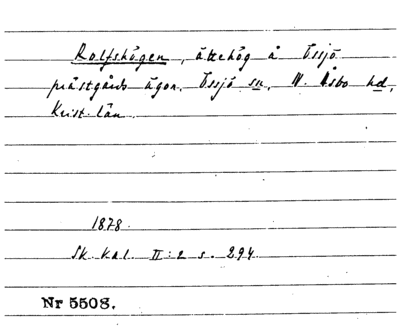 Rolfshögen, ättehög å Össjö
prästgårds ägor. Össjö sn, N. Åsbo hd,
Krist. län.
1878.
Sk. kal. II:2 s. 294.
Nr 5508.